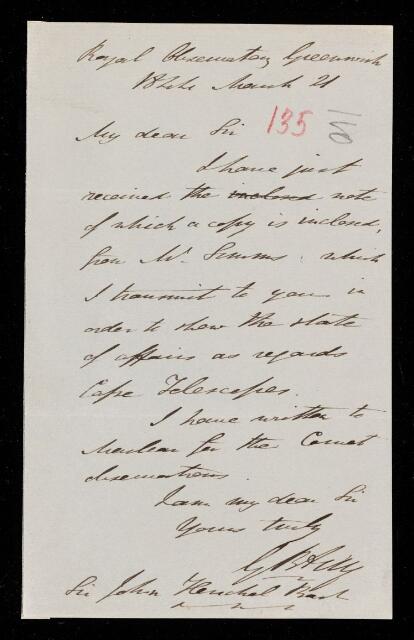 Royal Observatory Greenwich
March 21
My dear Sir
135
I have just
received the inclosed note
of which a copy is inclosed,
from Mr. Simms: which
I transmit to you in
order to show the state
of affairs as regards
Cape Telescopes.
I have written to
Maclear for the Comet
observations.
I am my dear Sir
Yours truly
G B Airy
Sir John Herschel Bart